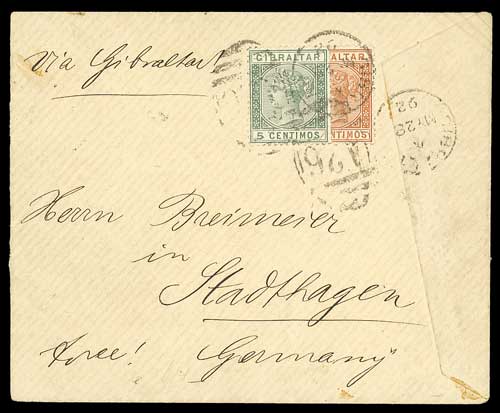 via Gibraltar
GIBRALTAR
5 CENTIMOS
ALTAR
NTIMOS
A26
MY 28
92
Herrn Breimeier
in
Stadthagen
Germany